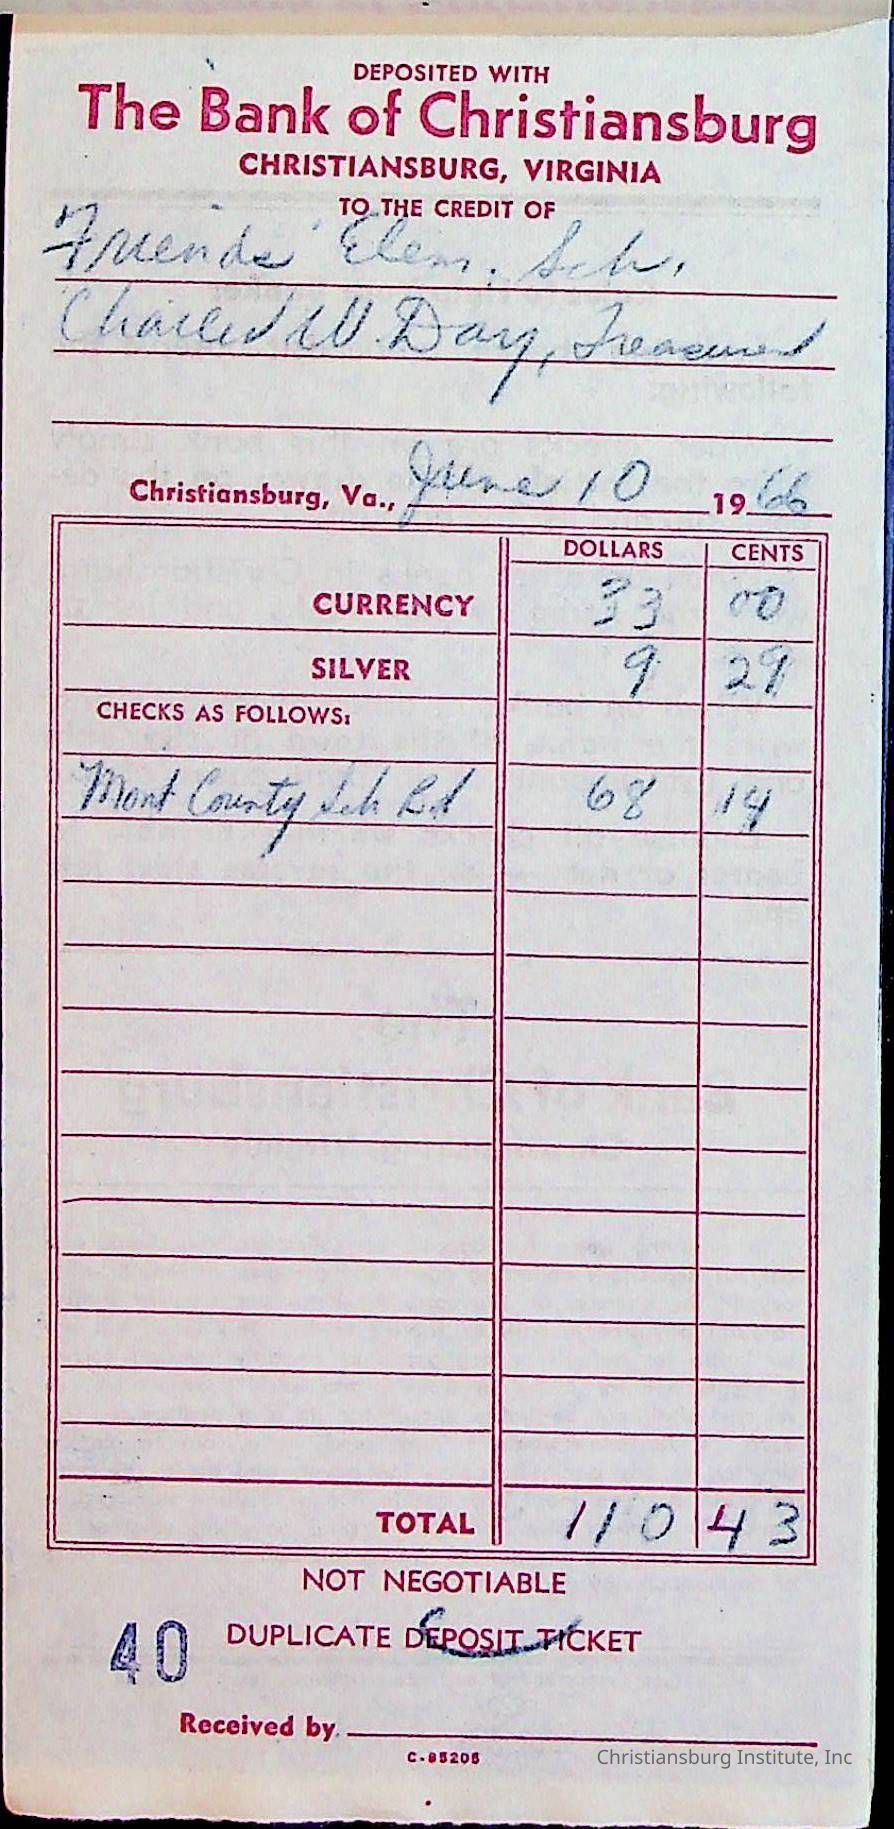 DEPOSITED WITH
The Bank of Christiansburg
CHRISTIANSBURG, VIRGINIA
TO THE CREDIT OF
Friends' Elem. Sch.
Charles W. Day, Treasurer
Christiansburg, Va., June 10 1966
DOLLARS CENTS
CURRENCY 33 00
SILVER 9 29
CHECKS AS FOLLOWS:
Mont County Sch Bd 68 14
TOTAL 110 43
NOT NEGOTIABLE
40 DUPLICATE DEPOSIT TICKET
Received by
C-85206
Christiansburg Institute, Inc